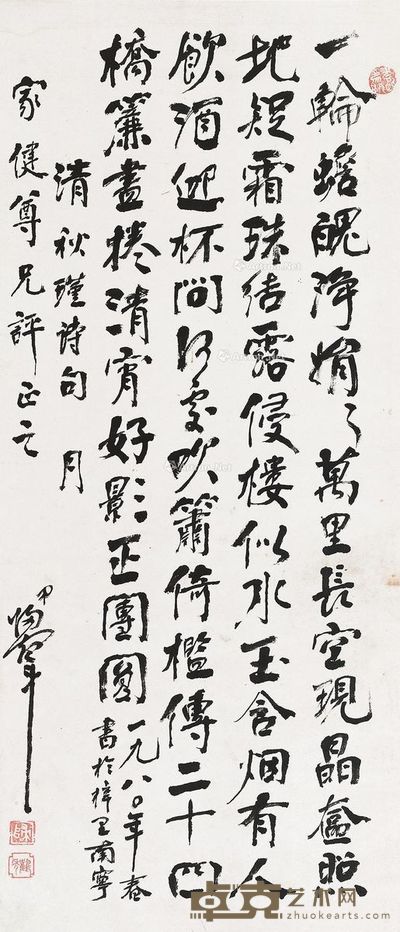 一輪蟾魄淨娟々萬里長空現晶奩照
地疑霜珠結露侵樓似水玉含烟有人
飲酒迎杯問何處吹簫倚檻傳二十四
橋簾盡捲清宵好影正團圓
一九八〇年春
書於梓里南寧
清秋瑾詩句 月
家健尊兄評正之
卓克艺术网
zhuokearts.com